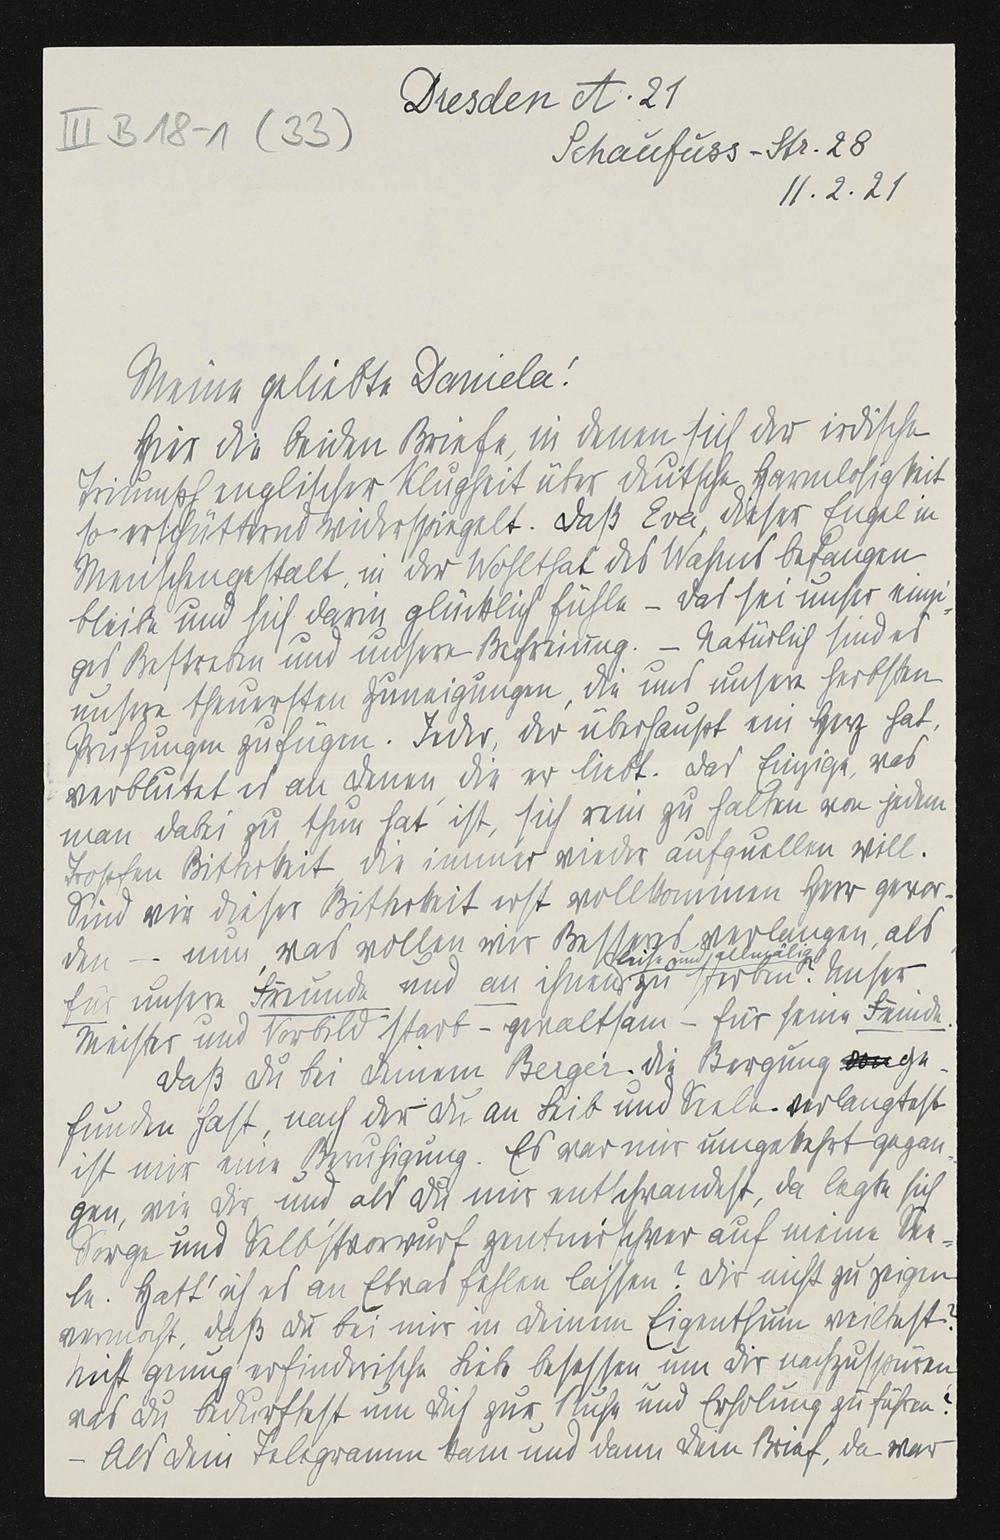 III B 18-1 (33)
Dresden A. 21
Schaufuss-Str. 28
11. 2. 21
Meine geliebte Daniela!
Hier die beiden Briefe, in denen sich der irdische
Triumpf englischer Klugheit über deutsche Harmlosigkeit
so erschütternd widerspiegelt. Daß Eva, dieser Engel in
Menschengestalt, in der Wohlthat des Wahns befangen
bleibe und sich darin glücklich fühle – das sei unser einzi-
ges Bestreben und unsere Befreiung. – Natürlich sind es
unsere theuersten Zuneigungen, die uns unsere herbsten
Prüfungen zufügen. Jeder, der überhaupt ein Herz hat,
verblutet es an denen, die er liebt. Das Einzige, was
man dabei zu thun hat ist, sich rein zu halten von jedem
Tropfen Bitterkeit, die immer wieder aufquellen will.
Sind wir dieser Bitterkeit erst vollkommen Herr gewor-
den – nun, was wollen wir Besseres verlangen, als
leise und allmälig
für unsere Freunde und an ihnen zu sterben? Unser
Meister und Vorbild starb – gewaltsam – für seine Feinde.
Daß Du bei Deinem Berger die Bergung ge-
funden hast, nach der Du an Leib und Seele verlangtest
ist mir eine Beruhigung. Es war mir umgekehrt gegan-
gen, wie Dir, und als Du mir entschwandest, da legte sich
Sorge und Selbstvorwurf zentnerschwer auf meine See-
le. Hatt' ich es an Etwas fehlen lassen? Dir nicht zu zeigen
vermocht, daß Du bei mir in Deinem Eigenthum weiltest?
Nicht genug erfinderische Liebe besessen um Dir nachzuspüren
was Du bedurftest um Dich zur Ruhe und Erholung zu führen?
– Als Dein Telegramm kam und dann Dein Brief, da war